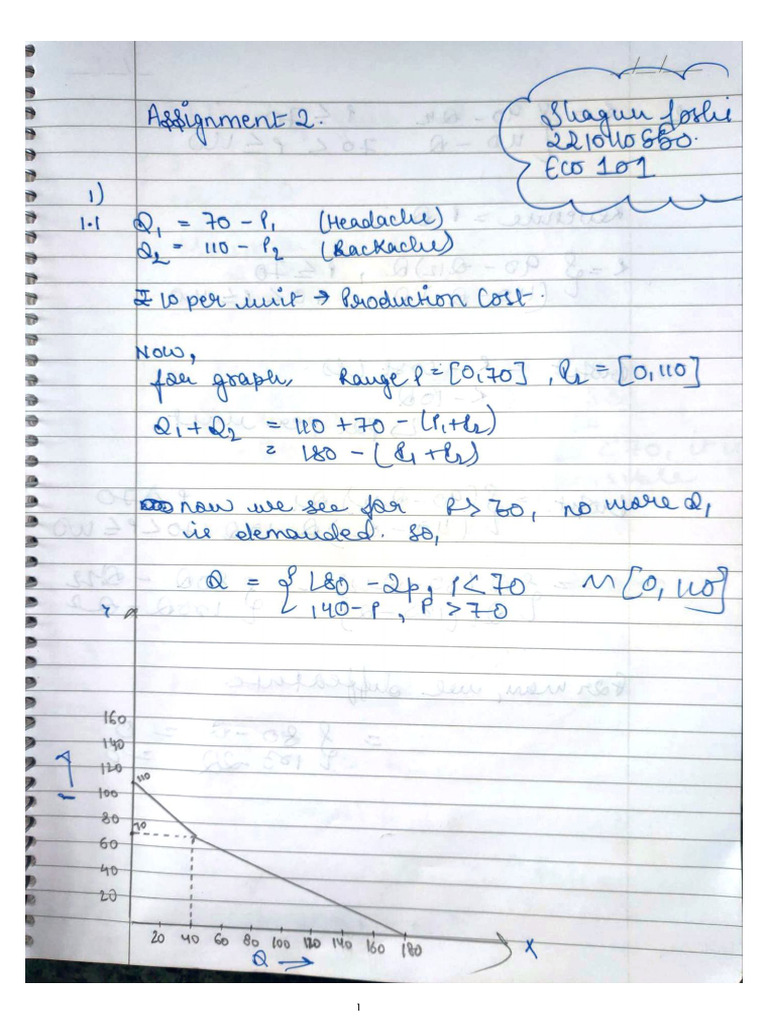 Assignment 2.
Shagun Joshi
221040550.
Eco 101
1)
1.1 Q1 = 70 - P1 (Headache)
Q2 = 110 - P2 (Backache)
10 per unit → Production Cost.
Now,
for graph, Range P = [0,70] , P2 = [0,110]
Q1 + Q2 = 110 + 70 - (P1+P2)
= 180 - (P1 + P2)
now we see for P > 70, no more Q1
is demanded. so,
Q = { 180 - 2p, P < 70 [0, 110]
140 - P , P > 70
Y
160
140
120
110
100
80
70
60
40
20
20 40 60 80 100 120 140 160 180
Q → X
1